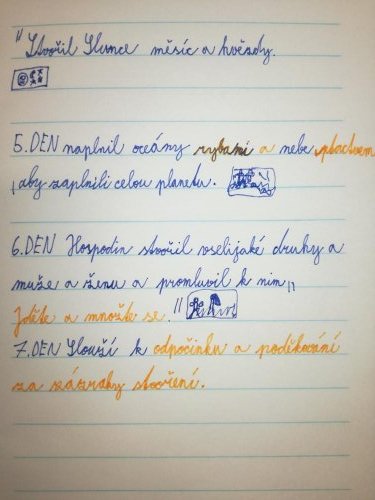 "Stvořil Slunce měsíc a hvězdy.
5. DEN naplnil oceány rybami a nebe ptactvem
aby zaplnili celou planetu.
6. DEN Hospodin stvořil vselijaké druhy a
muže a ženu a promluvil k nim „
Jděte a množte se."
7. DEN Slouží k odpočinku a poděkování
za zázraky stvoření.